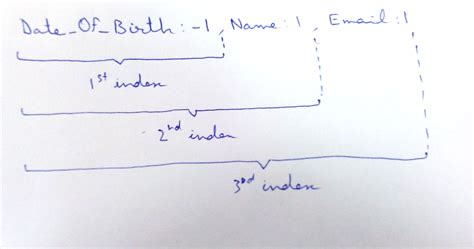 Date_Of_Birth : -1, Name : 1, Email : 1
1st index
2nd index
3rd index